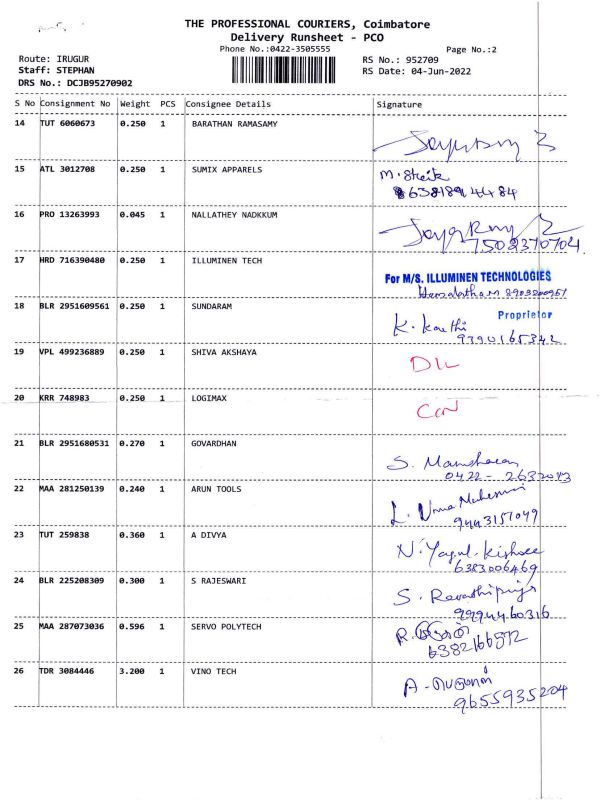 THE PROFESSIONAL COURIERS, Coimbatore
Delivery Runsheet - PCO
Phone No.:0422-3505555
Page No.:2
Route: IRUGUR
RS No.: 952709
Staff: STEPHAN
RS Date: 04-Jun-2022
DRS No.: DCJB95270902
S No Consignment No Weight PCS Consignee Details Signature
14 TUT 6060673 0.250 1 BARATHAN RAMASAMY
15 ATL 3012708 0.250 1 SUMIX APPARELS
M.
8638189 4484
16 PRO 13263993 0.045 1 NALLATHEY NADKKUM
7502370704
17 HRD 716390480 0.250 1 ILLUMINEN TECH
For M/S. ILLUMINEN TECHNOLOGIES
8903200951
Proprietor
18 BLR 2951609561 0.250 1 SUNDARAM
K. Karthi
9390165342
19 VPL 499236889 0.250 1 SHIVA AKSHAYA
DIL
20 KRR 748983 0.250 1 LOGIMAX
21 BLR 2951680531 0.270 1 GOVARDHAN
S.
0422 - 2632043
22 MAA 281250139 0.240 1 ARUN TOOLS
L. Uma
9443157049
23 TUT 259838 0.360 1 A DIVYA
N. Yagul
6383006469
24 BLR 225208309 0.300 1 S RAJESWARI
S.
9994460316
25 MAA 287073036 0.596 1 SERVO POLYTECH
R.
6382166872
26 TDR 3084446 3.200 1 VINO TECH
A -
9655935204